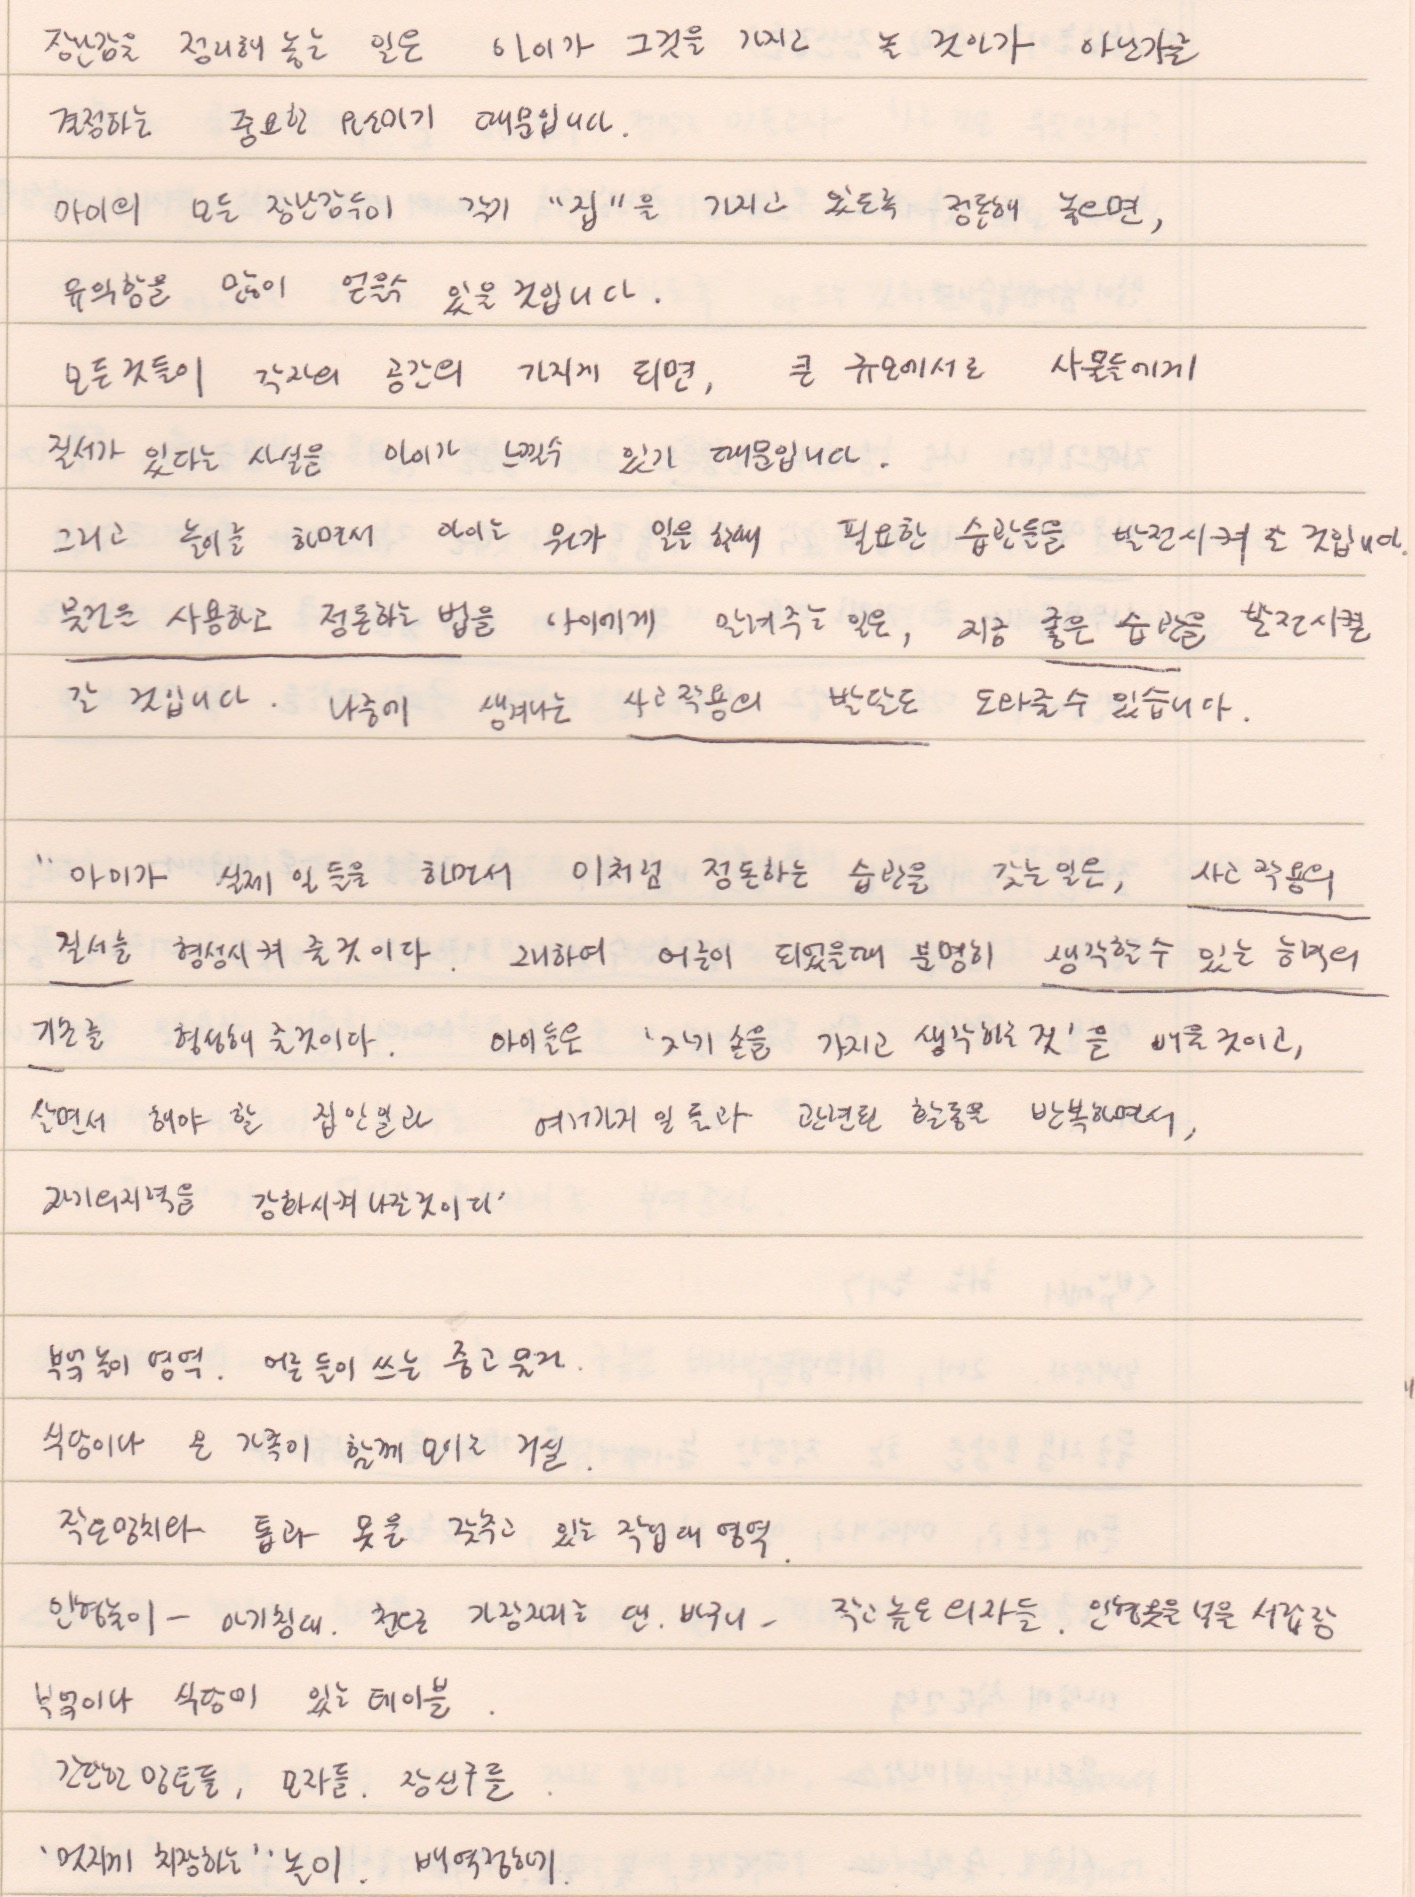 장난감을 정리해 놓는 일은 아이가 그것을 가지고 놀 것인가 아닌가를
결정하는 중요한 요소이기 때문입니다.
아이의 모든 장난감들이 각기 "집"을 가지고 있도록 정돈해 놓으면,
유익함을 많이 얻을수 있을 것입니다.
모든것들이 각자의 공간의 가지게 되면, 큰 규모에서도 사물들에게
질서가 있다는 사실을 아이가 느낄수 있기 때문입니다.
그리고 놀이를 하면서 아이는 뭔가 일을 할때 필요한 습관들을 발전시켜 갈 것입니다.
물건은 사용하고 정돈하는 법을 아이에게 알려주는 일은, 지금 좋은 습관을 발전시켜
갈 것입니다. 나중에 생겨나는 사고작용의 발달도 도와줄수 있습니다.
"아이가 실제 일들을 하면서 이처럼 정돈하는 습관을 갖는일은, 사고 작용의
질서를 형성시켜 줄것이다. 그리하여 어른이 되었을때 분명히 생각할수 있는 능력의
기초를 형성해 줄것이다. 아이들은 '자기 손을 가지고 생각하는 것'을 배울것이고,
살면서 해야 할 집안일과 여러가지 일들과 관련된 활동을 반복하면서,
자기의지력을 강화시켜 나갈것이다'
부엌놀이 영역. 어른들이 쓰는 중고 물건.
식당이나 온 가족이 함께 모이는 거실.
작은망치와 톱과 못을 갖추고 있는 작업대 영역.
인형놀이 - 아기침대. 천으로 가장자리를 댄. 바구니 - 작고 높은 의자들. 인형옷을 넣을 서랍장
부엌이나 식당에 있는 테이블.
간단한 망토들, 모자들. 장신구들.
'멋지게 치장하는' 놀이. 배역정하기.